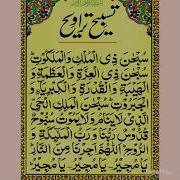 تسبیح تراویح
سُبْحٰنَ ذِی الْمُلْكِ وَالْمَلَكُوْتِ
سُبْحٰنَ ذِی الْعِزَّةِ وَالْعَظَمَةِ وَ
الْهَیْبَةِ وَالْقُدْرَةِ وَالْكِبْرِیَآءِ وَ
الْجَبَرُوْتِ سُبْحٰنَ الْمَلِكِ الْحَیِّ
الَّذِیْ لَا یَنَامُ وَلَا یَمُوْتُ سُبُّوْحٌ
قُدُّوْسٌ رَبُّنَا وَرَبُّ الْمَلٰٓئِكَةِ وَ
الرُّوْحِ اَللّٰهُمَّ اَجِرْنَا مِنَ النَّارِ
یَا مُجِیْرُ یَا مُجِیْرُ یَا مُجِیْرُ